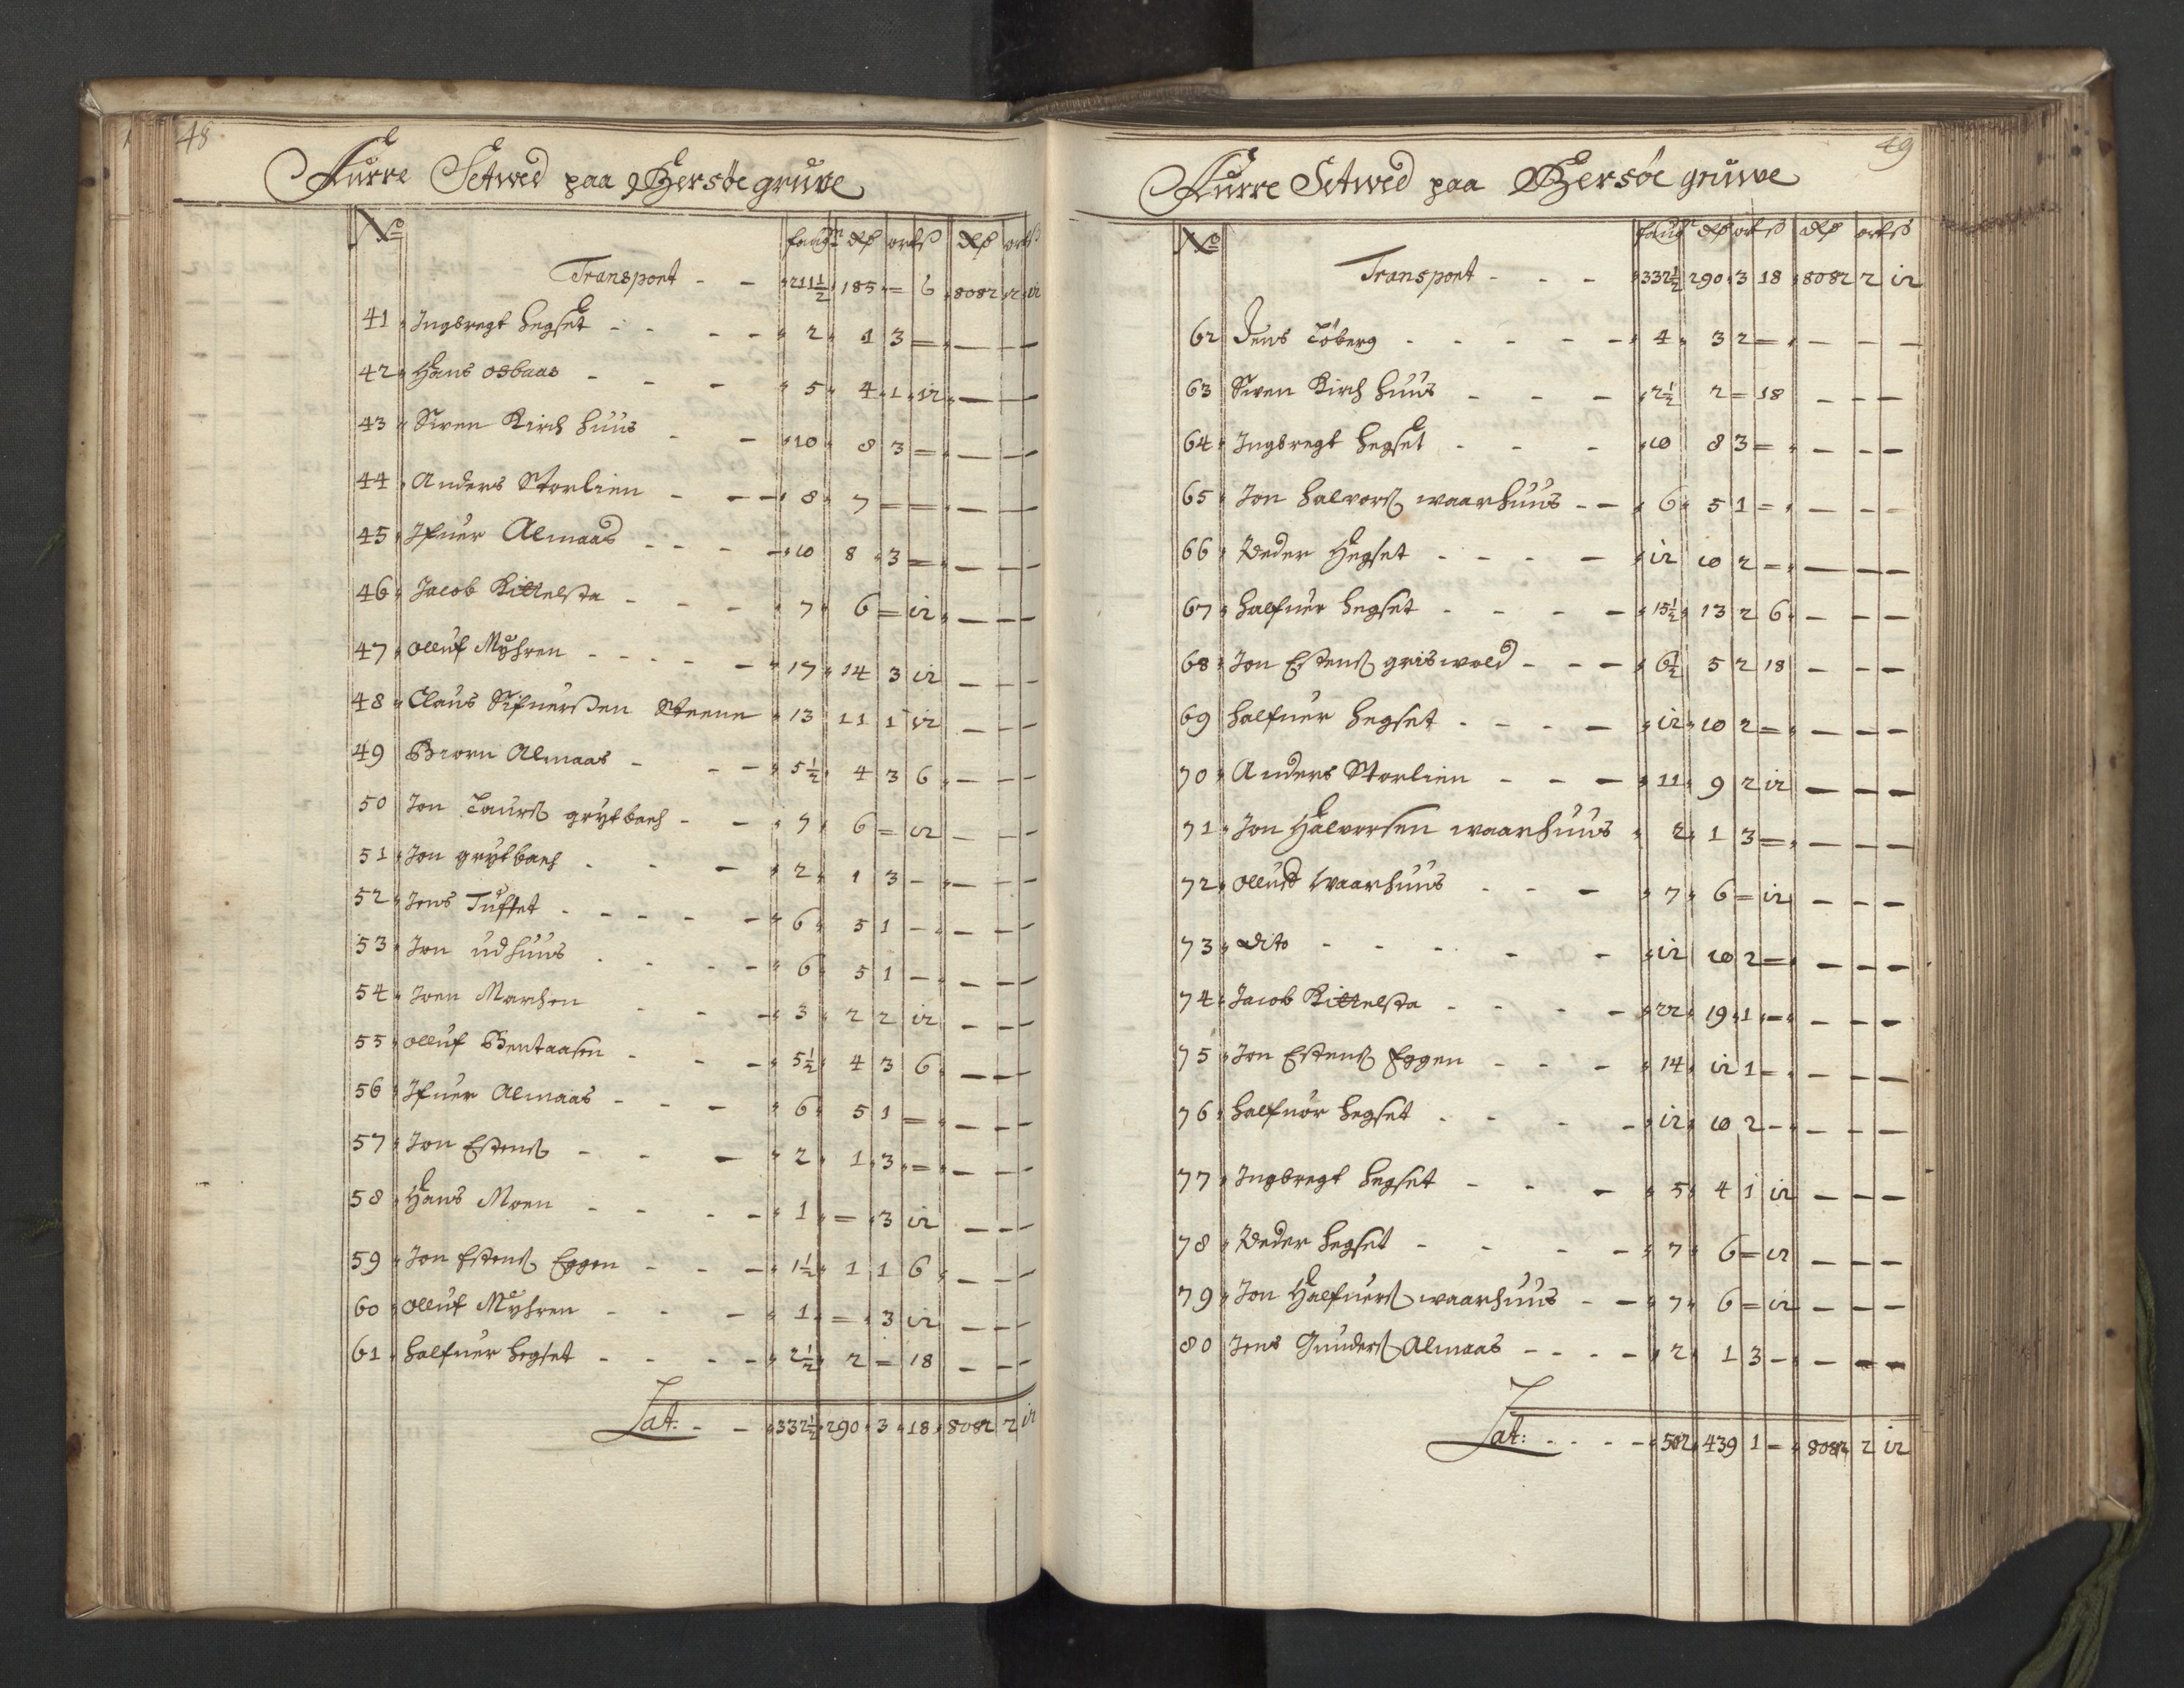 48
Furre Setwed paa Bersöe gruve
No faug dlr ort ß dlr ort ß
Transport - - 211½ 185 = 6 8082 2 12
41 Ingbregt hegset - - - - 2 1 3 = — — —
42 Hans osbaas - - - 5 4 1 12 — — —
43 Siven Kirch huus - - 10 8 3 = — — —
44 Anders Storlien - - - 8 7 = = — — —
45 Ifuer Almaas - - - - 10 8 3 = — — —
46 Jacob Kittelsta - - - 7 6 = 12 — — —
47 olluf Myhren - - - - - 17 14 3 12 — — —
48 Claus Sifuerßen Steene 13 11 1 12 — — —
49 Biorn Almaas - - - 5½ 4 3 6 — — —
50 Jon Laurß grytbach - - 7 6 = 12 — — —
51 Jon grytbach - - - 2 1 3 - — — —
52 Jens Tuffet - - - - - 6 5 1 - — — —
53 Jon udhuus - - - - 6 5 1 - — — —
54 Joen Marchen - - - 3 2 2 12 — — —
55 olluf Bentaasen - - - 5½ 4 3 6 — — —
56 Ifuer Almaas - - - 6 5 1 = — — —
57 Jon Estenß - - - 2 1 3 = — — —
58 Hans Moen - - - - 1 = 3 12 — — —
59 Jon Estenß Eggen - - - 1½ 1 1 6 — — —
60 olluf Myhren - - - 1 = 3 12 — — —
61 halfuer hegset - - - - 2½ 2 = 18 — — —
Lat: - - 332½ 290 3 18 8082 2 12
49
Furre Setwed paa Bersöe gruwe
No faug dlr ort ß dlr ort ß
Transport - - - 332½ 290 3 18 8082 2 12
62 Jens Löberg - - - - - 4 3 2 = — — —
63 Siven Kirch huus - - - 2½ 2 = 18 — — —
64 Ingbregt hegset - - - 10 8 3 = — — —
65 Jon halvorß waarhuus - - 6 5 1 = — — —
66 Peder Hegset - - - - 12 10 2 = — — —
67 halfuer hegset - - - - 15½ 13 2 6 — — —
68 Jon Estenß griswold - - - 6½ 5 2 18 — — —
69 halfuer hegset - - - - 12 10 2 = — — —
70 Anders Storlien - - - 11 9 2 12 — — —
71 Jon Halvorsen waarhuus 2 1 3 = — — —
72 olluf Waarhuus - - - 7 6 = 12 — — —
73 dito - - - - - 12 10 2 = — — —
74 Jacob Kittelsta - - - - 22 19 1 = — — —
75 Jon Estenß Eggen - - - 14 12 1 - — — —
76 halfuor hegset - - - - 12 10 2 - — — —
77 Ingbregt hegset - - - 5 4 1 12 — — —
78 Peder hegset - - - - 7 6 = 12 — — —
79 Jon Halfuerß waarhuus - - 7 6 = 12 — — —
80 Jens Gunderß Almaas - - - - 2 1 3 - — — —
Lat: - - - - 502 439 1 - 8082 2 12